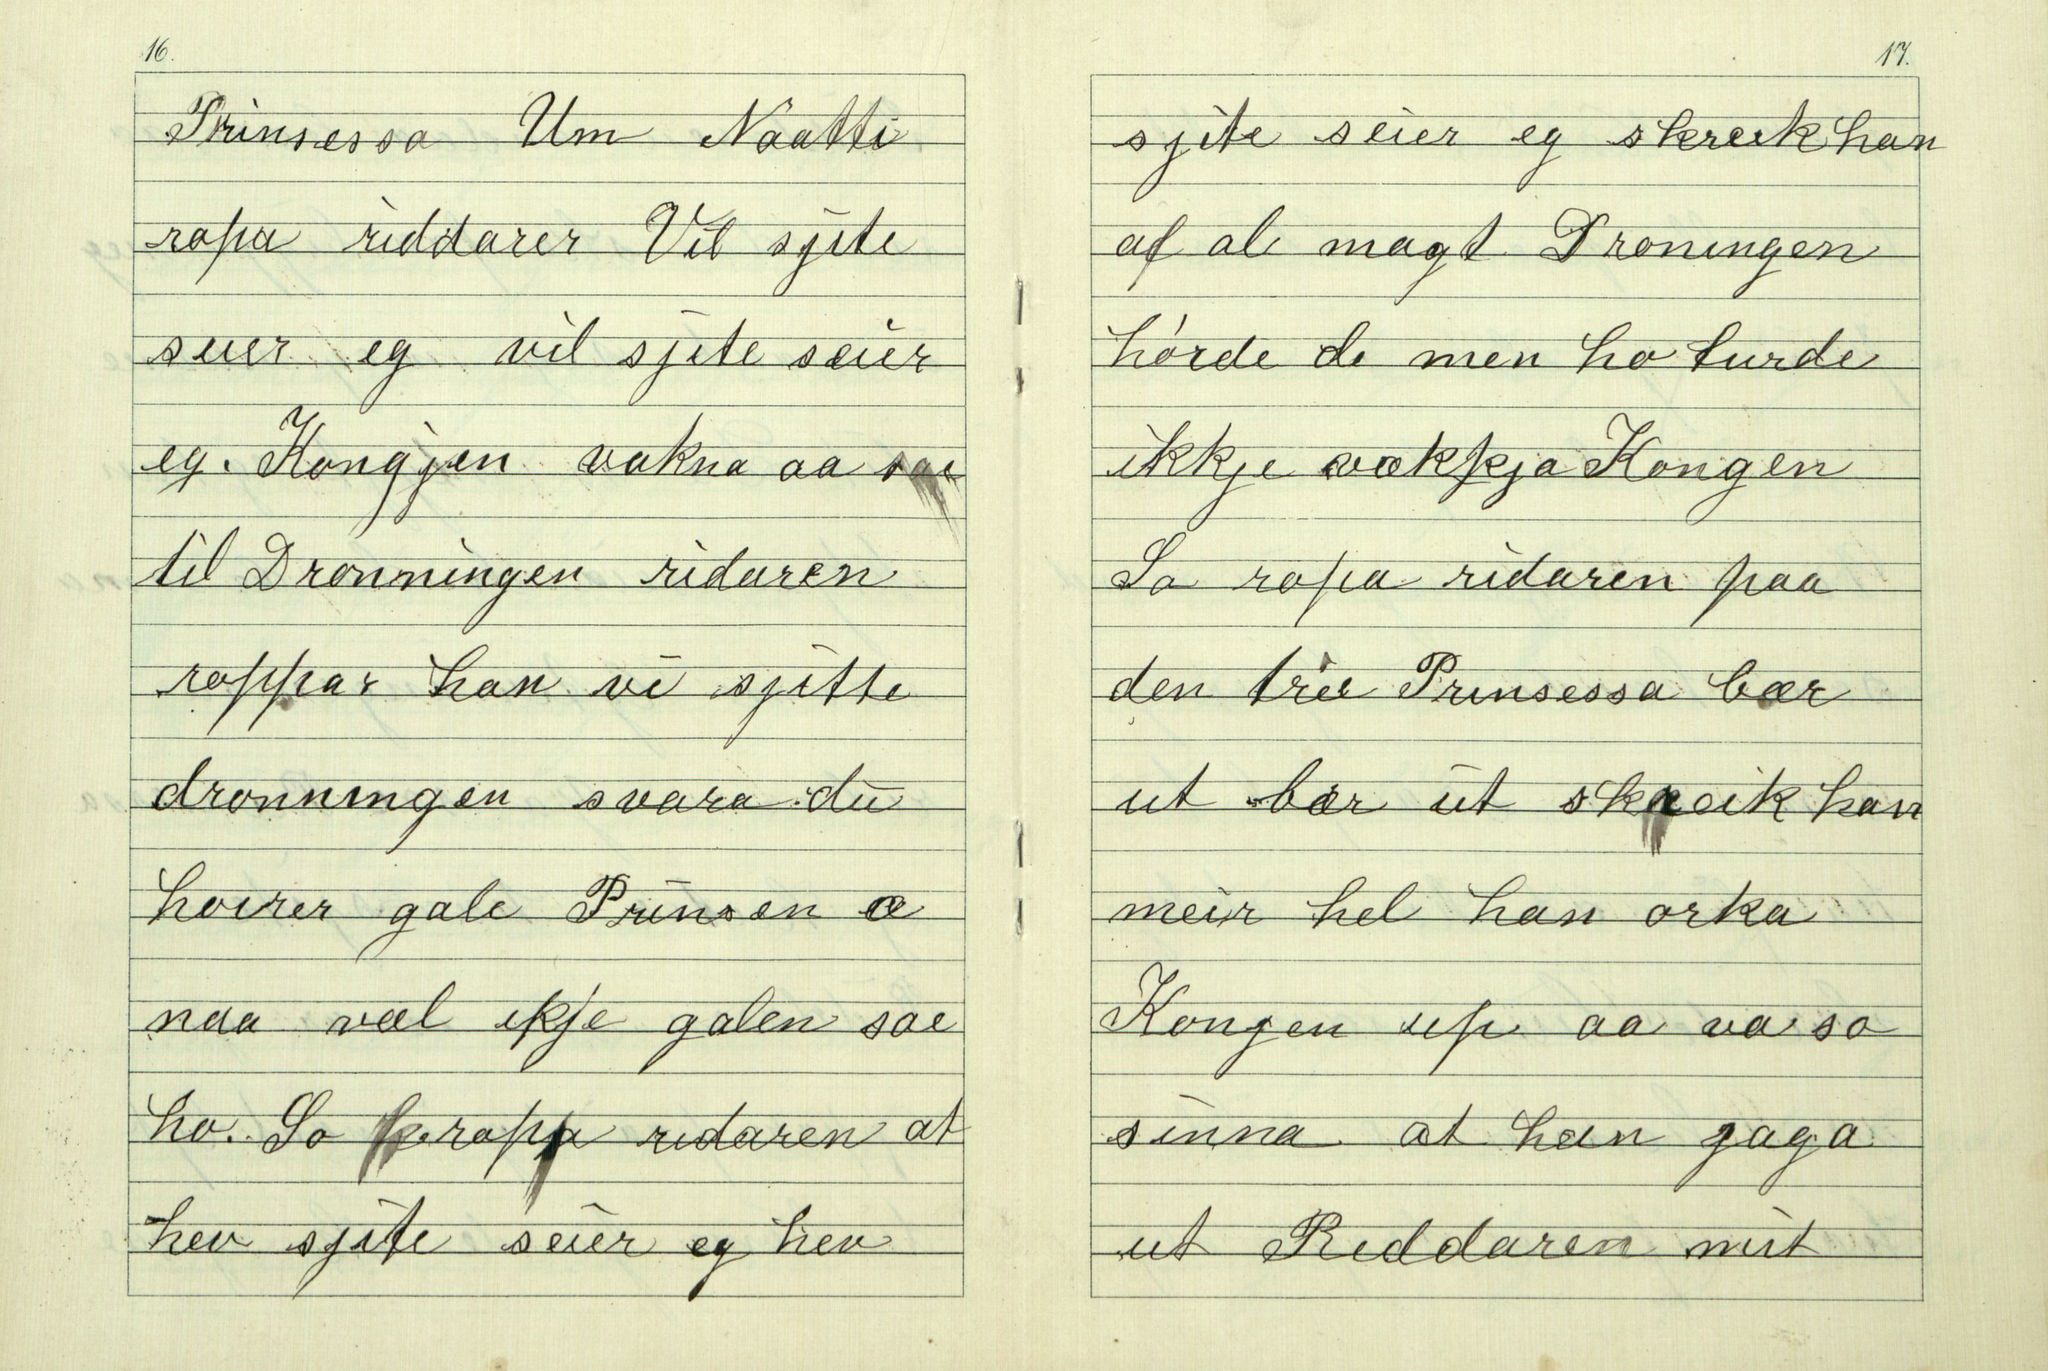 16.
Prinsessa Um Nåatti
ropa riddarer Vil sjite
seier eg vil sjite seier
eg. Kongjen vakna aa sae
til Dronningen ridaren
roppar han vi sjitte
dronningen svara du
hoirer gale Prinsen æ
naa væl ikje galen sae
ho. So ropa ridaren at
hev sjite seier eg hev
17.
sjite seier eg skreik han
af al magt Droningen
hórde de men ho turde
ikkje vækkja Kongen
So ropa ridaren paa
den trie Prinsessa bær
ut bær ut skreik han
meir hel han orka
Kongen up aa va so
sinna at han jaga
ut Riddaren mit